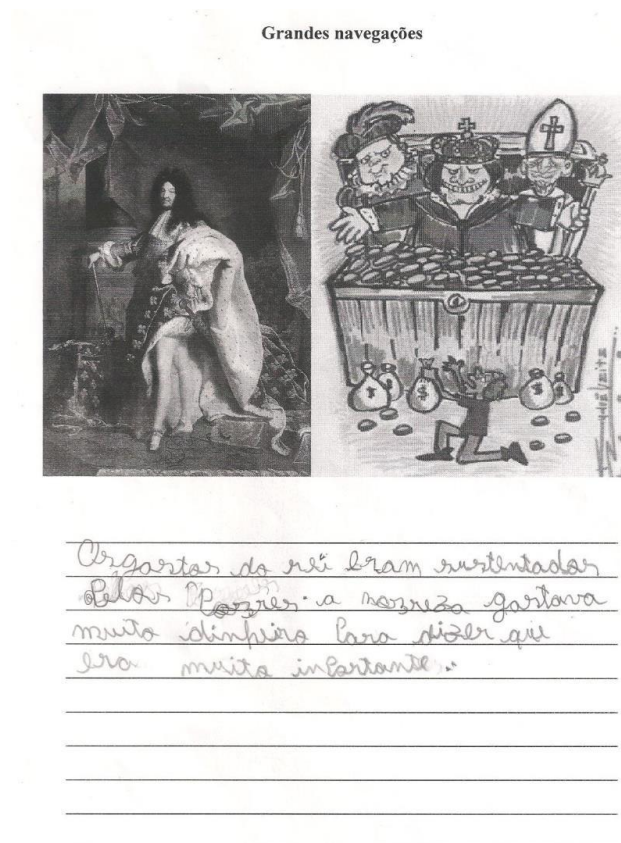 Grandes navegações
Osgastos do rei eram sustentados
Pelos Pozres. a nozreza gastava
muito dinheiro Para dizer que
era muito inportante..